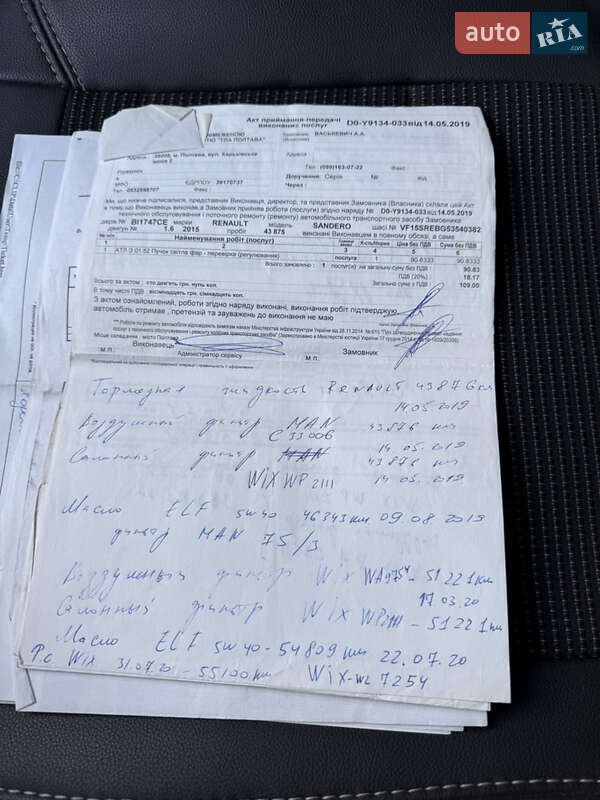 auto RIA.com
Акт приймання-передачі
виконаних послуг D0-Y9134-033 від 14.05.2019
ВАСЬКЕВИЧ А.А.
"ТЛА ПОЛТАВА"
Адреса : м. Полтава, вул. Харьківське Адреса :
шосе 2 Тел (099)163-07-22 Факс
Рахунок Доручення: Серія № від
МФО ЄДРПОУ 39170737 Через :
Тел 0532698707 Факс
Ми, що нижче підписалися, представник Виконавця, директор, та представник Замовника (Власника) склали цей Акт
в тому, що Виконавець виконав, а Замовник прийняв роботи (послуги) згідно наряду № D0-Y9134-033 від 14.05.2019
технічного обслуговування і поточного ремонту (ремонту) автомобільного транспортного засобу Замовника
держ № BI1747CE марки RENAULT SANDERO шасі № VF15SREBG53540382
двигун № 1.6 2015 пробіг 43 875 виконані Виконавцем в повному обсязі, а саме
№ Найменування робіт (послуг) Ціна без ПДВ Сума без ПДВ
1 2 3 4 5 6
1 АТЛ Э 01.52 Пучок світла фар - перевірка (регулювання) послуга 1 90.8333 90.8333
Всього замовлено : 1 послуг(и) на загальну суму без ПДВ: 90.83
ПДВ (20%) : 18.17
Загальна сума з ПДВ : 109.00
Всього за актом : сто дев'ять грн. нуль коп.
В тому числі ПДВ : вісімнадцять грн. сімнадцять коп.
З актом ознайомлений, роботи згідно наряду виконані, виконання робіт підтверджую,
автомобіль отримав , претензій та зауважень до виконання не маю
Місце складання , місто Полтава
Виконавець Замовник
М.П. Адміністратор сервісу М.П.
Тормозная жидкость RENAULT 43876 км
14.05 2019
Воздушный фильтр MAN 43876 км
C 33006 14 05. 2019
Салонный фильтр MAN 43876 км
WIX WP 2111 14 05. 2019
Масло ELF 5W40 46343 км 09.08 2019
фильтр MAN 75/3
Воздушный фильтр WIX WA9754 - 51221 км
17 03.20
Салонный фильтр WIX WP2111 - 51221 км
Масло ELF 5W40 - 54809 км 22.07.20
Р.С. WIX 31.07.20 - 55100 км WIX-WL 7254